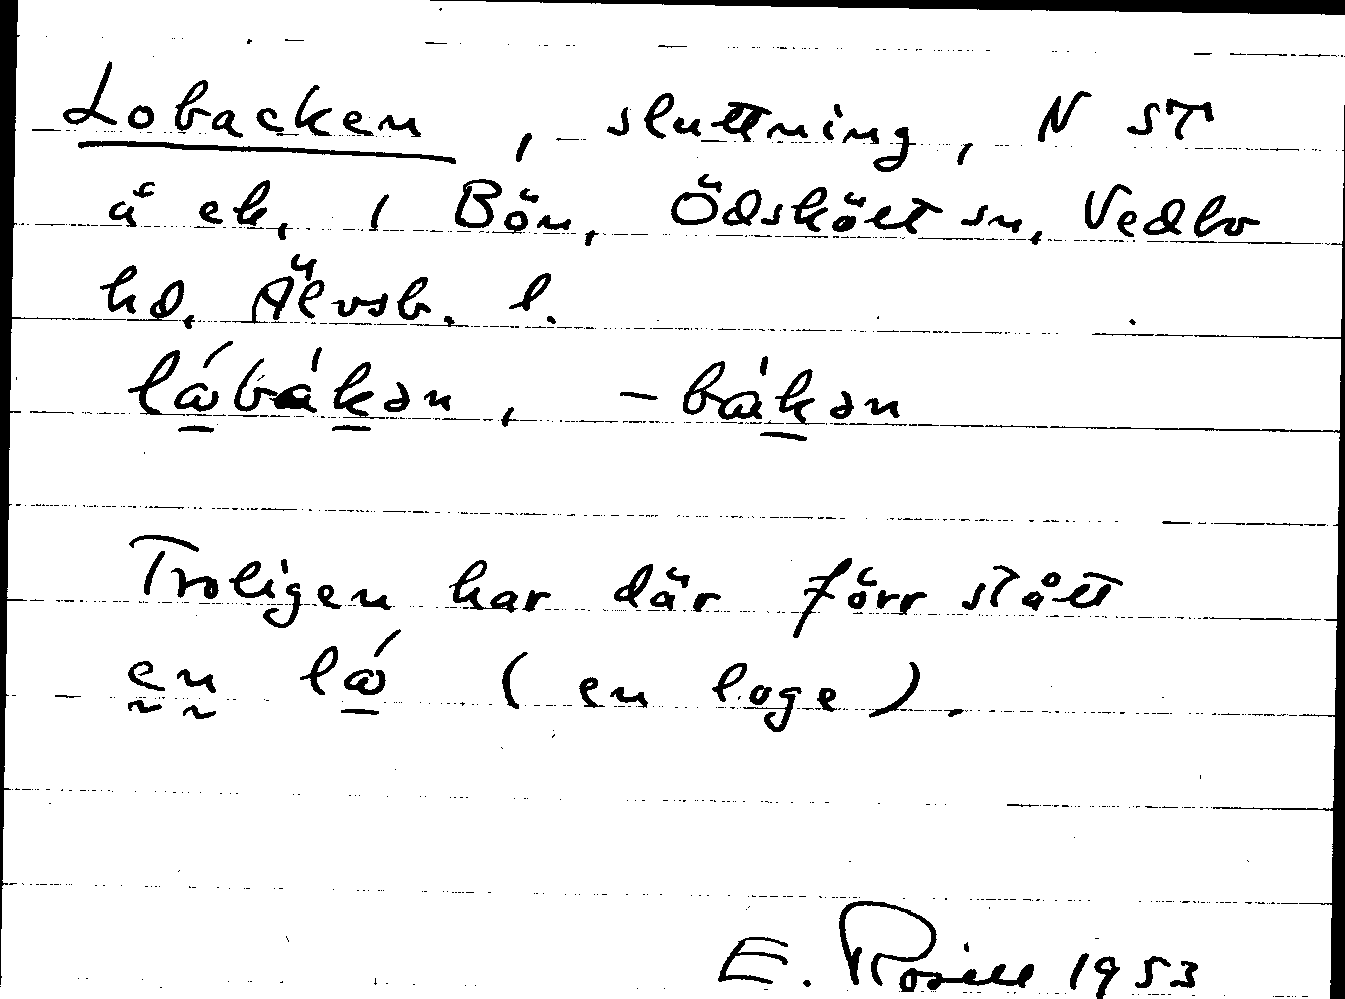 Lobacken, sluttning, N st
å ek, 1 Bön, Ödskölt sn, Vedbo
hd, Älvsb. l.
lábákən, -bákən
Troligen har där förr stått
en lá (en loge).
E. Rosell 1953